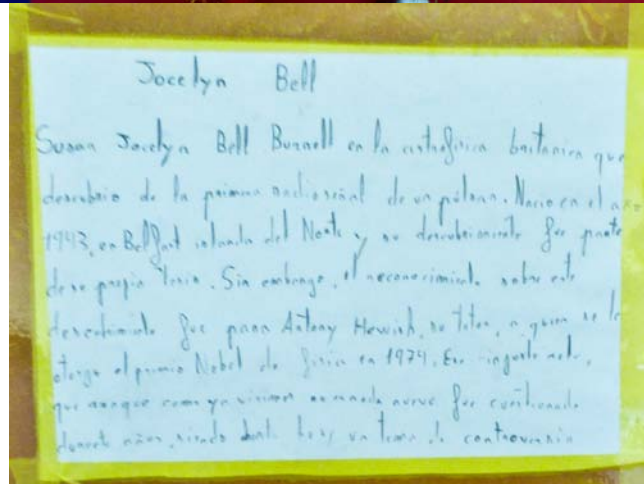 Jocelyn Bell
Susan Jocelyn Bell Burnell es la astrofísica britanica que
descubrio de la primera radioseñal de un púlsar. Nacio en el año
1943, en Belfast irlanda del Norte y su descubrimiento fue parte
de su propia Tesis. Sin embargo, el reconocimiento sobre este
descubrimiento fue para Antony Hewish, su tutor, a quien se le
otorgo el premio Nobel de física en 1974. Ese
que aunque como ya vivimos fue cuestionado
años, siendo hasta hoy un tema de controversia